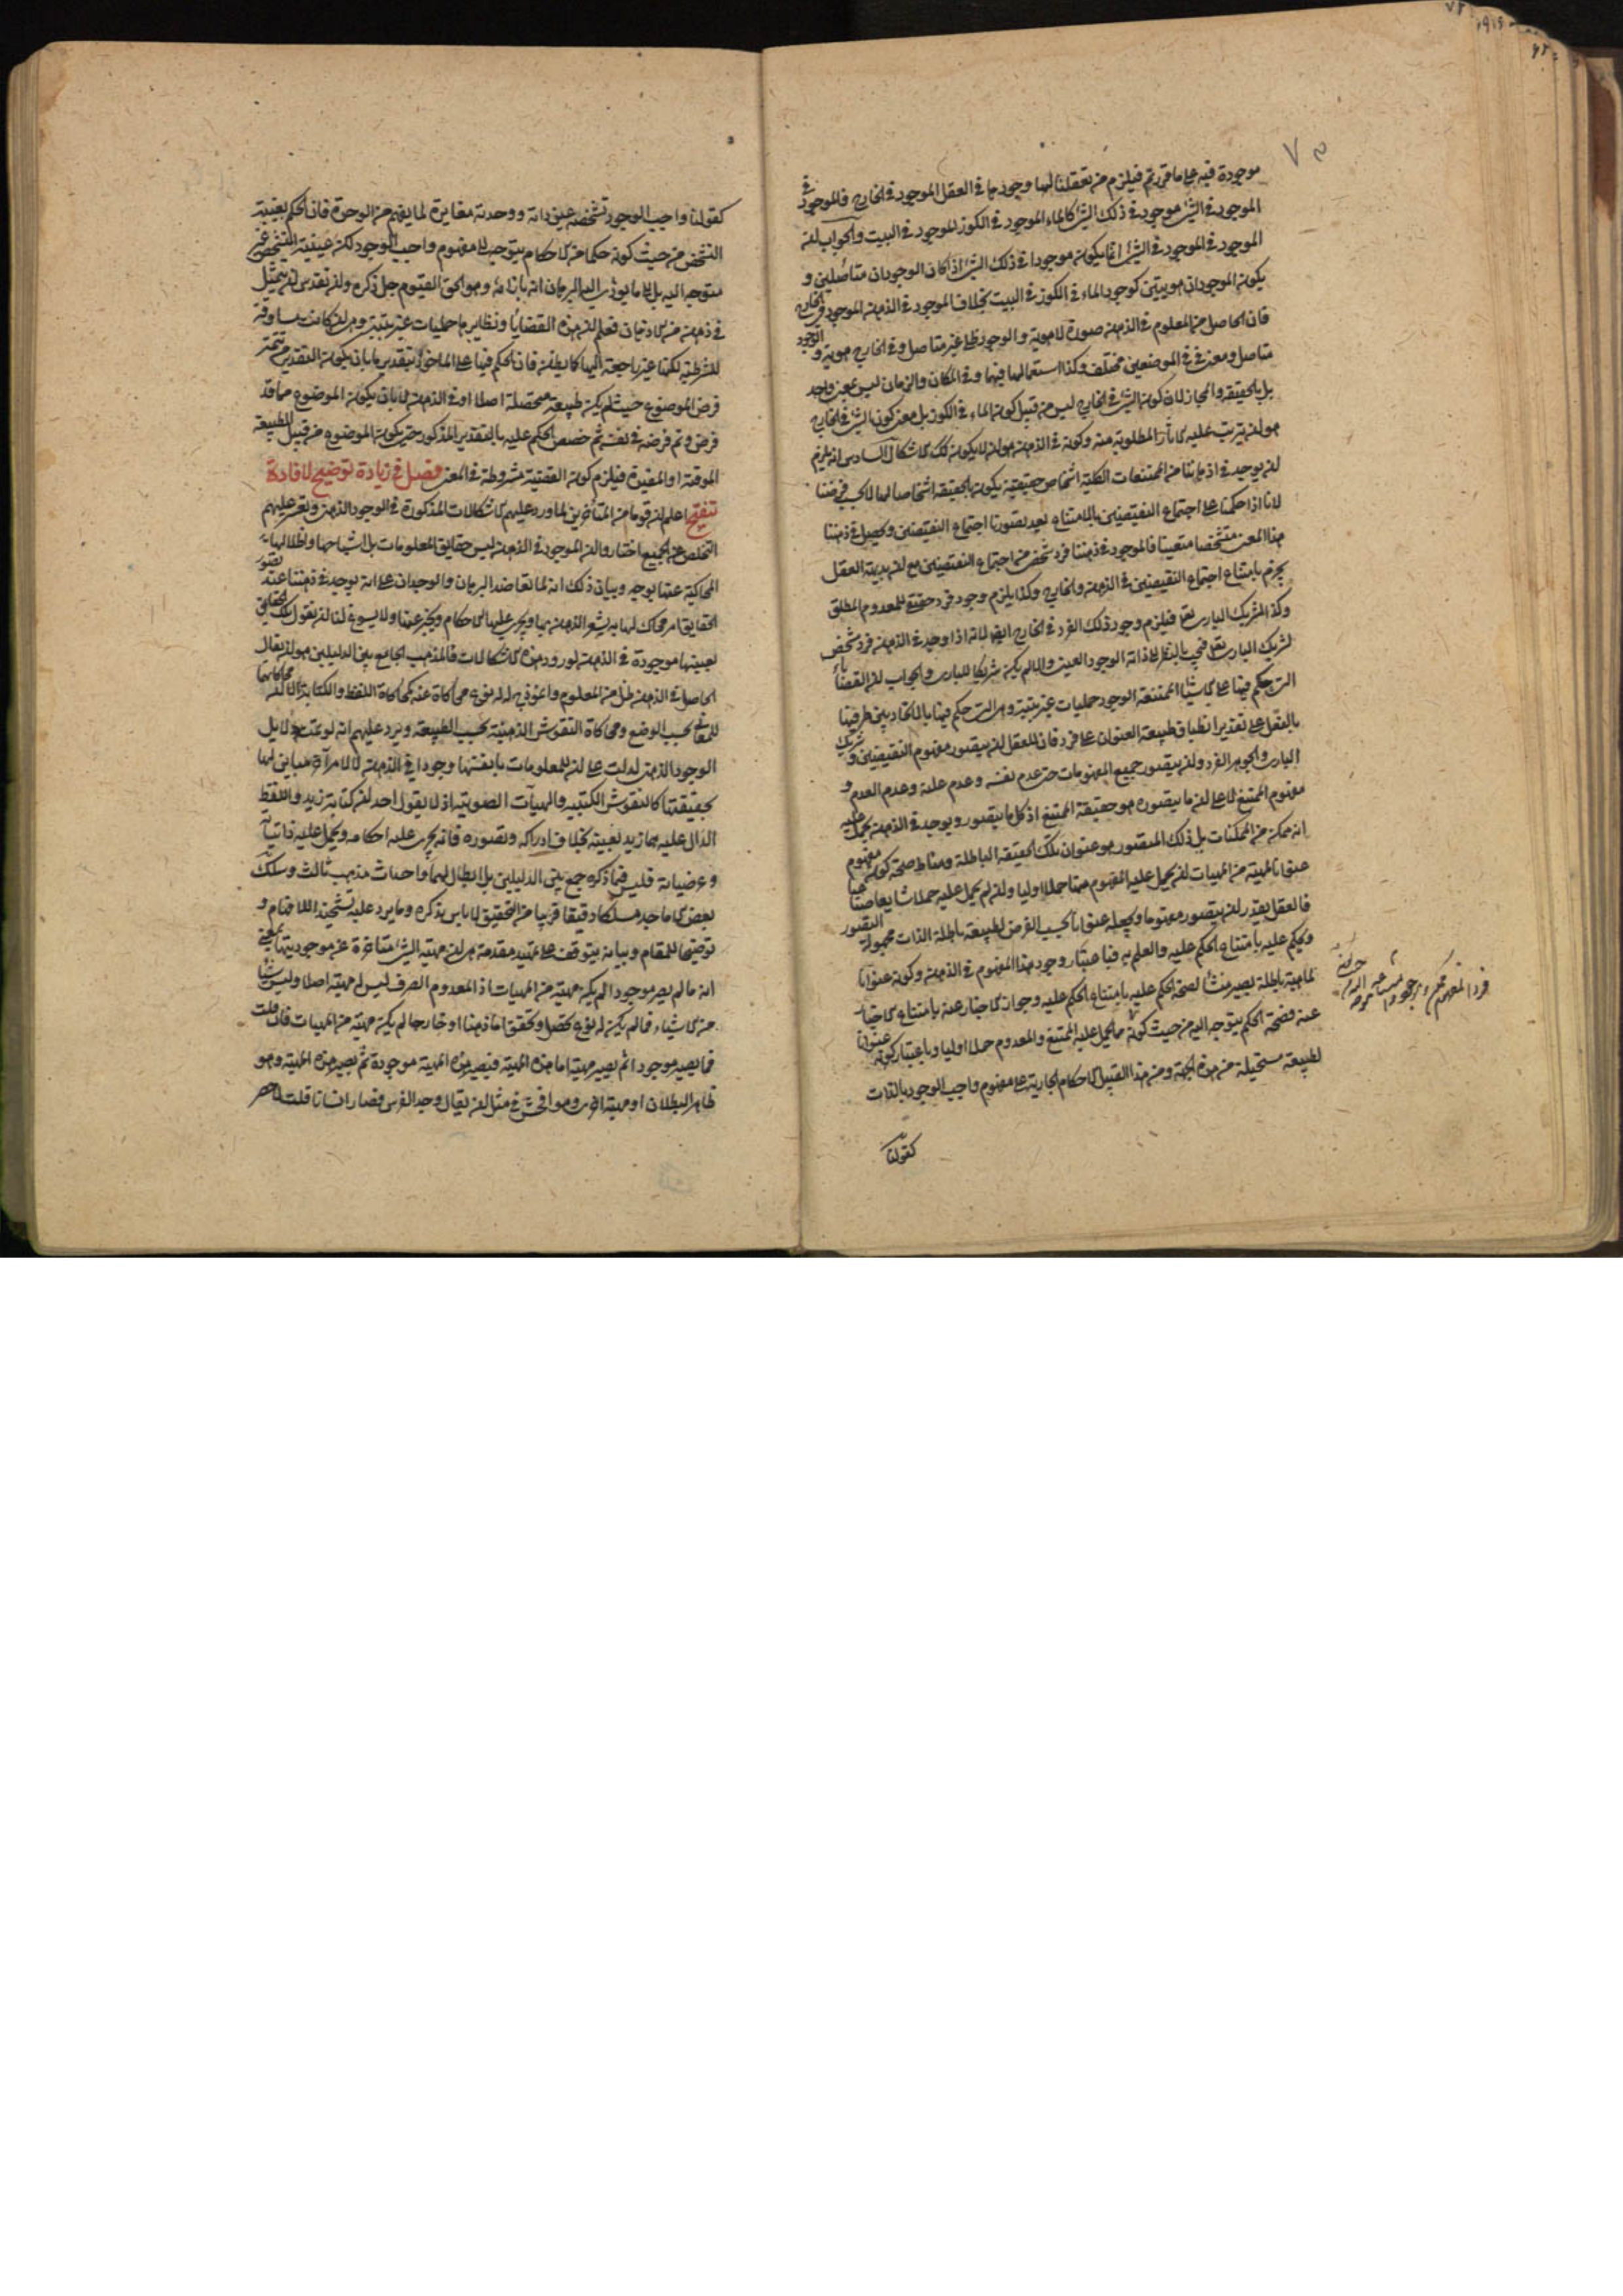 موجودة فيه على ما قررتم فيلزم من تعقلنا لها وجودها في العقل الموجود في الخارج فالموجود في
الموجود في الشئ موجود في ذلك الشئ كالماء الموجود في الكوز الموجود في البيت والجواب ان
الموجود في الموجود في الشئ انما يكون موجودا في ذلك الشئ اذا كان الوجودان متأصلين و
يكون الموجودان هويتين كوجود الماء في الكوز في البيت بخلاف الموجود في الذهن الموجود في الخارج
فان الحاصل من المعلوم في الذهن صورة لا هوية والوجود ظلي غير متاصل وفي الخارج هوية والوجود
متاصل ومعنى في في الموضعين مختلف وكذا استعمالها فيهما وفي المكان والزمان ليس بمعنى واحد
بل بالحقيقه والمجاز لان كون الشئ في الخارج ليس من قبيل كون الماء في الكوز بل معنى كون الشئ في الخارج
هو ان يترتب عليه الآثار المطلوبة منه وكونه في الذهن هو ان لا يكون كك الاشكال السادس انه يلزم
ان يوجد في اذهاننا من الممتنعات الكلية اشخاص حقيقية يكون بالحقيقه اشخاصا لها لا بحسب فرضنا
لانا اذا حكمنا على اجتماع النقيضين بالامتناع بعد تصورنا اجتماع النقيضين وحصل في ذهننا
هذا المعنى متشخصا متعينا فالموجود في ذهننا فرد شخصي من اجتماع النقيضين مع ان بديهة العقل
يجزم بامتناع اجتماع النقيضين في الذهن والخارج وكذا يلزم وجود فرد حقيقي للمعدوم المطلق
وكذا لشريك الباري تعا فيلزم وجود ذلك الفرد في الخارج ايضا لانه اذا وجد في الذهن فرد شخصي
لشريك الباري تعا فيجب بالنظر الى ذاته الوجود العيني والا لم يكن شريكا للباري والجواب ان القضايا
التي حكم فيها على الاشياء الممتنعة الوجود حمليات غير بتية وهي التي حكم فيها بالاتحاد بين طرفيها
بالفعل على تقدير انطباق طبيعة العنوان على فرد فان للعقل ان يتصور مفهوم النقيضين وشريك
الباري والجوهر الفرد وان يتصور جميع المفهومات حتى عدم نفسه وعدم علته وعدم العدم و
مفهوم الممتنع لا على ان ما يتصوره هو حقيقة الممتنع اذ كل ما يتصور ويوجد في الذهن يحمل عليه
انه ممكن من الممكنات بل ذلك المتصور هو عنوان لتلك الحقيقه الباطلة ومناط صحة كون مفهوم
عنوانا لمهية من المهيات ان يحمل عليه المفهوم منها حملا اوليا وان لم يحمل عليه حملا شايعا صناعيا
فالعقل يقدر ان يتصور مفهوما ويجعله عنوانا بحسب الفرض لطبيعة باطلة الذات مجهولة التصور
ويحكم عليه بامتناع الحكم عليه والعلم به فباعتبار وجود هذا المفهوم في الذهن وكونه عنوانا
لماهية باطلة يصير منشأ لصحة الحكم عليه بامتناع الحكم عليه وجواز الاخبار عنه بامتناع الاخبار
عنه فصحة الحكم يتوجه اليه من حيث كونه مما يحمل عليه الممتنع والمعدوم حملا اوليا وباعتبار كونه عنوانا
لطبيعة مستحيلة من هذه الجهة ومن هذا القبيل الاحكام الجارية على مفهوم واجب الوجود بالذات
كقولنا
كقولنا واجب الوجود تشخصه عين ذاته ووحدته مغايرة لما يفهم من الوحدة فان الحكم بعينية
التشخص من حيث كونه حكما من الاحكام يتوجه الى مفهوم واجب الوجود لكن عينية التشخص غير
متوجه اليه بل الى ما يؤدي اليه البرهان انه بازائه وهو الحق القيوم جل ذكره وان تقدس ان يتمثل
في ذهن من الاذهان فعلم ان هذه القضايا ونظايرها حمليات غير بتية وهي ان كانت مساوقة
للشرطية لكنها غير راجعة اليها كما يظن فان الحكم فيها على الماخوذ بتقدير ما بان يكون التقدير من تتمة
فرض الموضوع حيث لم يكن طبيعة متحصلة اصلا او في الذهن لا بان يكون الموضوع مما قد
فرض وتم فرضه في نفسه ثم خصص الحكم عليه بالتقدير المذكور حتى يكون الموضوع من قبيل الطبيعة
الموقتة او المقيدة فيلزم كون القضية مشروطة في المعنى فصل في زيادة توضيح لافادة
تنقيح اعلم ان قوما من المتأخرين لما ورد عليهم الاشكالات المذكورة في الوجود الذهني وتعسر عليهم
التخلص عن الجميع اختاروا ان الموجود في الذهن ليس حقايق المعلومات بل اشباحها واظلالها
المحاكية عنها بوجه وبيان ذلك انه لما تعاضد البرهان والوجدان على انه يوجد في ذهننا عند تصور
الحقايق امر محاك لها به يشعر الذهن بها ويجري عليها الاحكام ويخبر عنها ولا يسوغ لنا ان نقول تلك الحقايق
بعينها موجودة في الذهن لورود هذه الاشكالات فالمذهب الجامع بين الدليلين هو ان يقال
الحاصل في الذهن ظل من المعلوم وانموذج له له نوع محاكاة عنه كمحاكاة اللفظ والكتابة الا ان محاكاتهما
للمعاني بحسب الوضع ومحاكاة النقوش الذهنية بحسب الطبيعة ويرد عليهم انه لو تمت دلايل
الوجود الذهني لدلت على ان للمعلومات بانفسها وجودا في الذهن لا لامر آخر مباين لها
بحقيقتها كالنقوش الكتبية والهيآت الصوتية اذ لا يقول احد ان كتابة زيد واللفظ
الدال عليه هما زيد بعينه بخلاف ادراكه وتصوره فانه يجري عليه احكامه ويحمل عليه ذاتياته
وعرضياته فليس فيما ذكره جمع بين الدليلين بل ابطال لهما واحداث مذهب ثالث وسلك
بعض الاماجد مسلكا دقيقا قريبا من التحقيق لا باس بذكره وما يرد عليه تشحيذا للافهام و
توضيحا للمقام وبيانه يتوقف على تمهيد مقدمة هي ان مهية الشئ متاخرة عن موجوديتها بمعنى
انه ما لم يصر موجودا لم يكن مهية من المهيات اذ المعدوم الصرف ليس له مهية اصلا وليس شيئا
من الاشياء فما لم يكن له نوع تحصل وتحقق اما ذهنا او خارجا لم يكن مهية من المهيات فان قلت
فما يصير موجودا ثم يصير مهية اما هذه المهية فيصير هذه المهية موجودة ثم يصير هذه المهية وهو
ظاهر البطلان او مهية اخرى وهو افحش في مثل ان يقال وجد الفرس فصار انسانا قلت